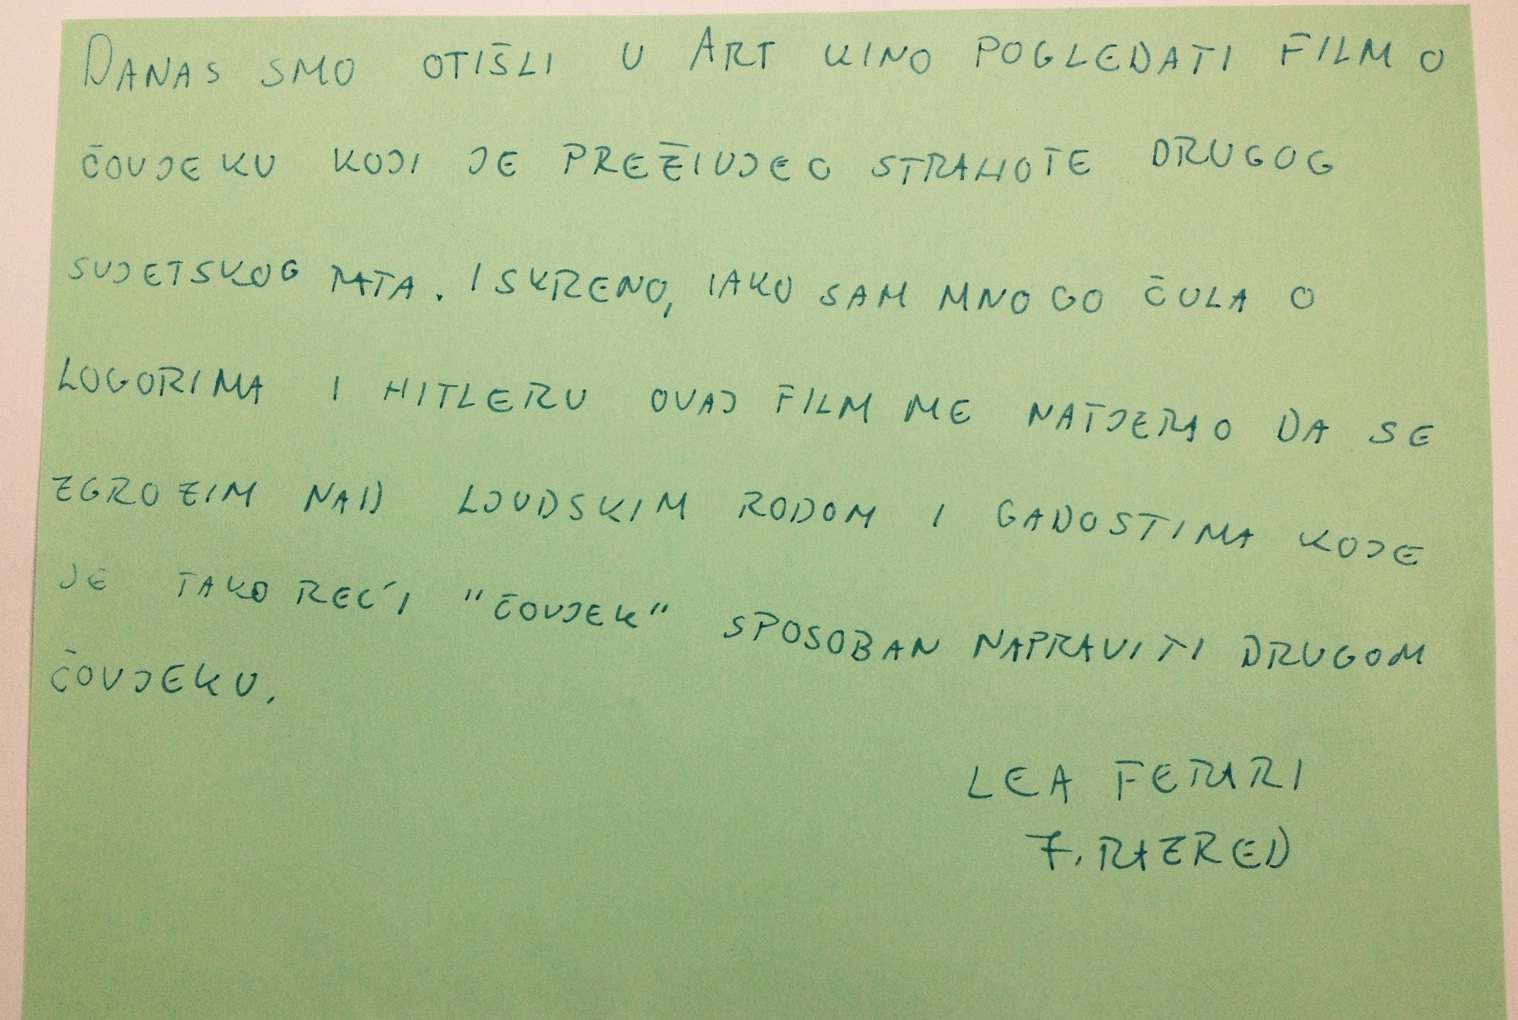 DANAS SMO OTIŠLI U ART KINO POGLEDATI FILM O
ČOVJEKU KOJI JE PREŽIVJEO STRAHOTE DRUGOG
SVJETSKOG RATA. ISKRENO, IAKO SAM MNOGO ČULA O
LOGORIMA I HITLERU OVAJ FILM ME NATJERAO DA SE
ZGROZIM NAD LJUDSKIM RODOM I GADOSTIMA KOJE
JE TAKO REĆI "ČOVJEK" SPOSOBAN NAPRAVITI DRUGOM
ČOVJEKU.
LEA FERARI
7. RAZRED